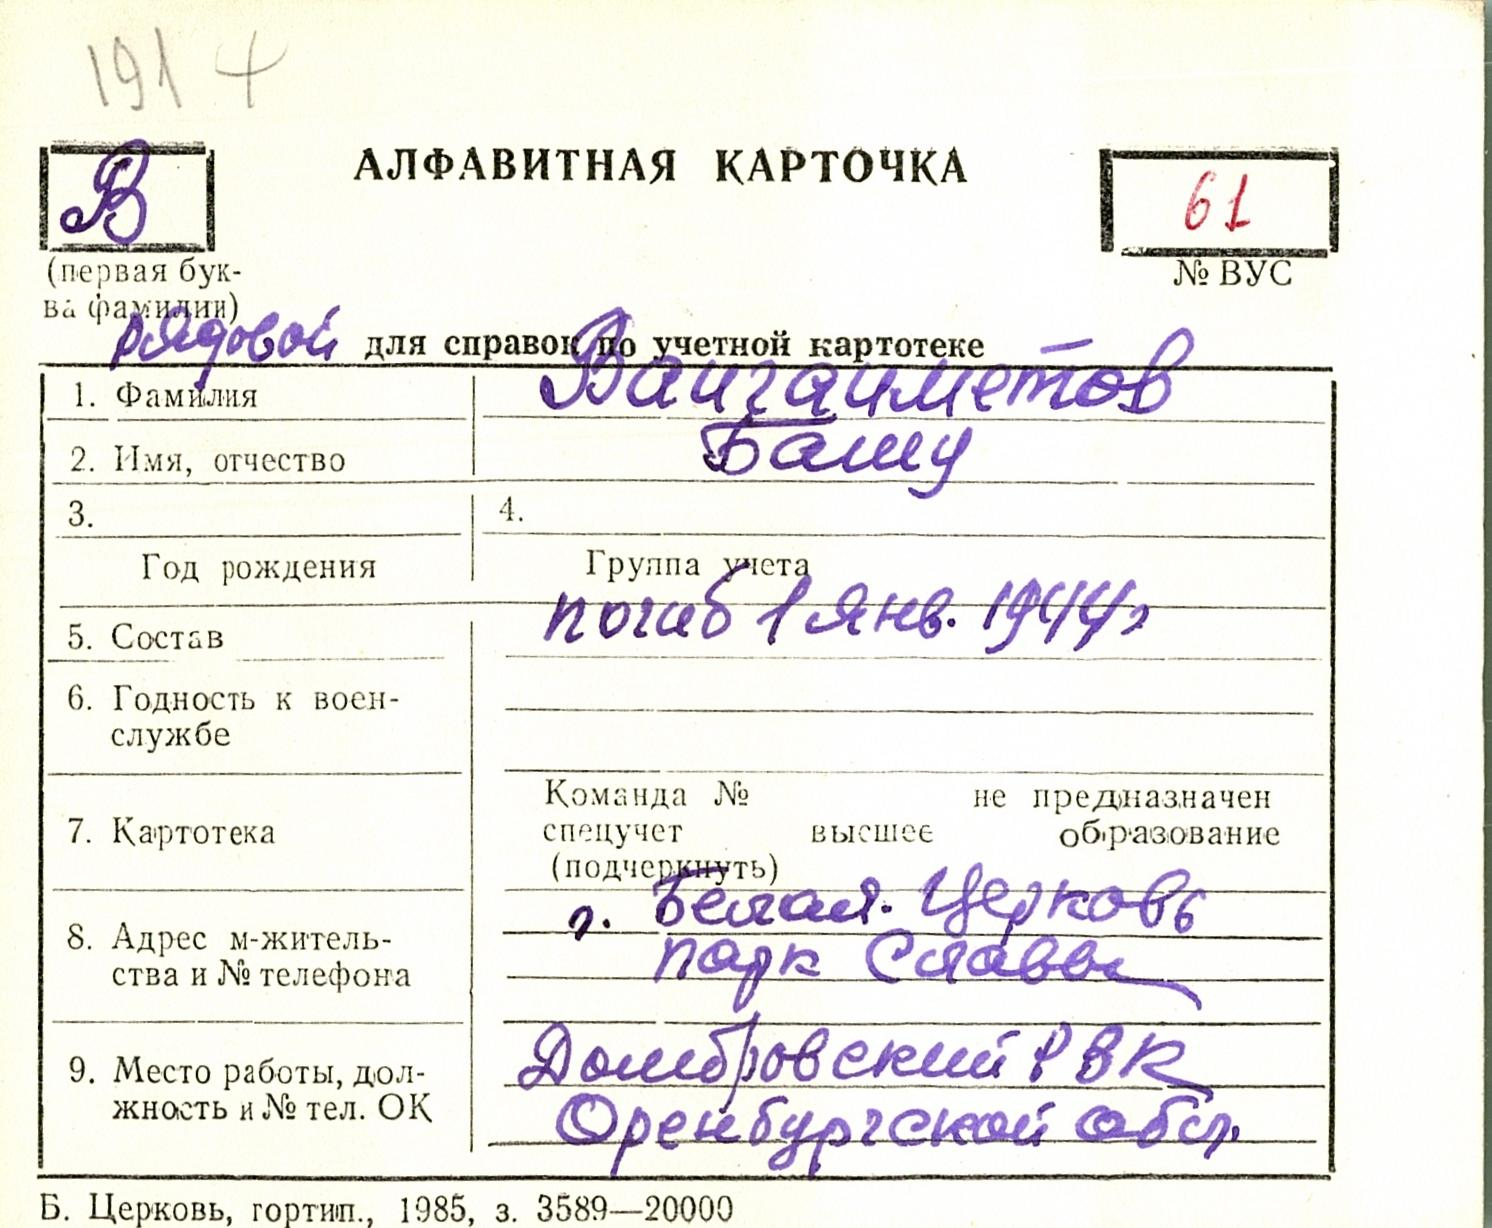 1914
В
АЛФАВИТНАЯ КАРТОЧКА
61
(первая бук-
ва фамилии)
№ ВУС
рядовой для справок по учетной картотеке
1. Фамилия Вайгайметов
2. Имя, отчество Башу
3. 4.
Год рождения Группа учета
погиб 1 янв. 1944 г
5. Состав
6. Годность к воен-
службе
Команда № не предназначен
7. Картотека спецучет высшее образование
(подчеркнуть)
г. Белая. Церковь
8. Адрес м-житель- парк Славы
ства и № телефона
Домбровский РВК
9. Место работы, дол-
жность и № тел. ОК Оренбургской обл.
Б. Церковь, гортип., 1985, з. 3589—20000